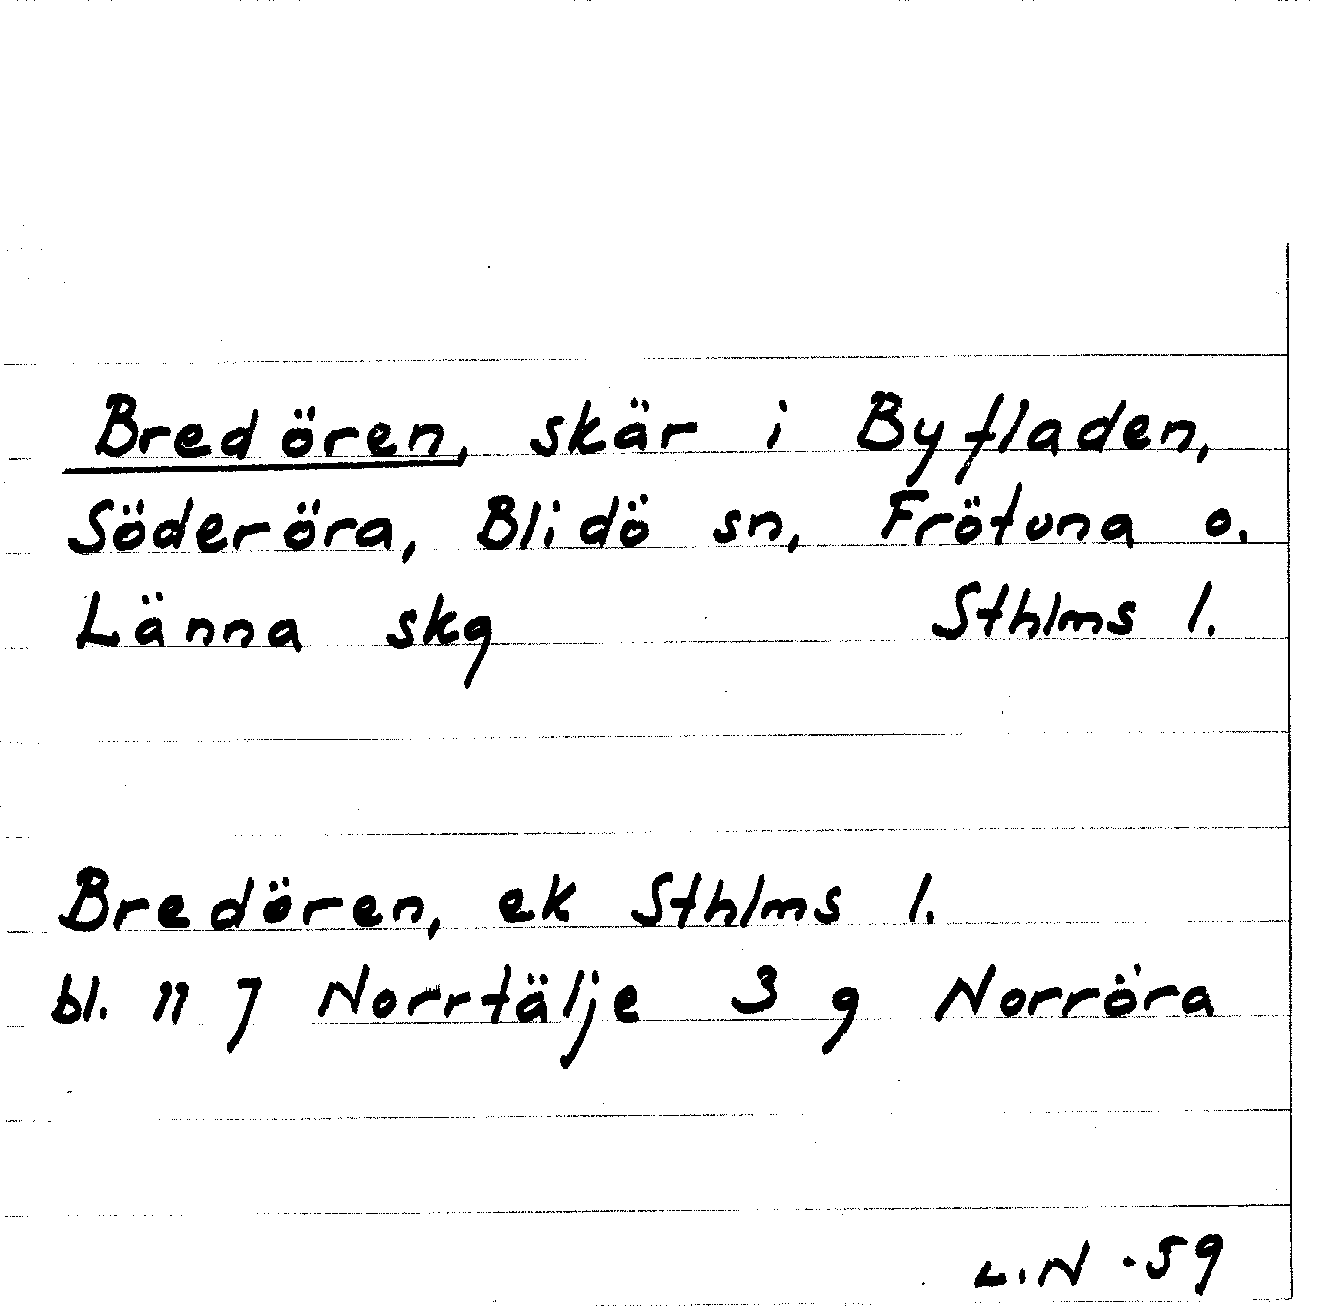 Bredören, skär i Byfladen,
Söderöra, Blidö sn, Frötuna o.
Länna skg Sthlms l.
Bredören, ek Sthlms l.
bl. 11 J Norrtälje 3 g Norröra
L.N -59